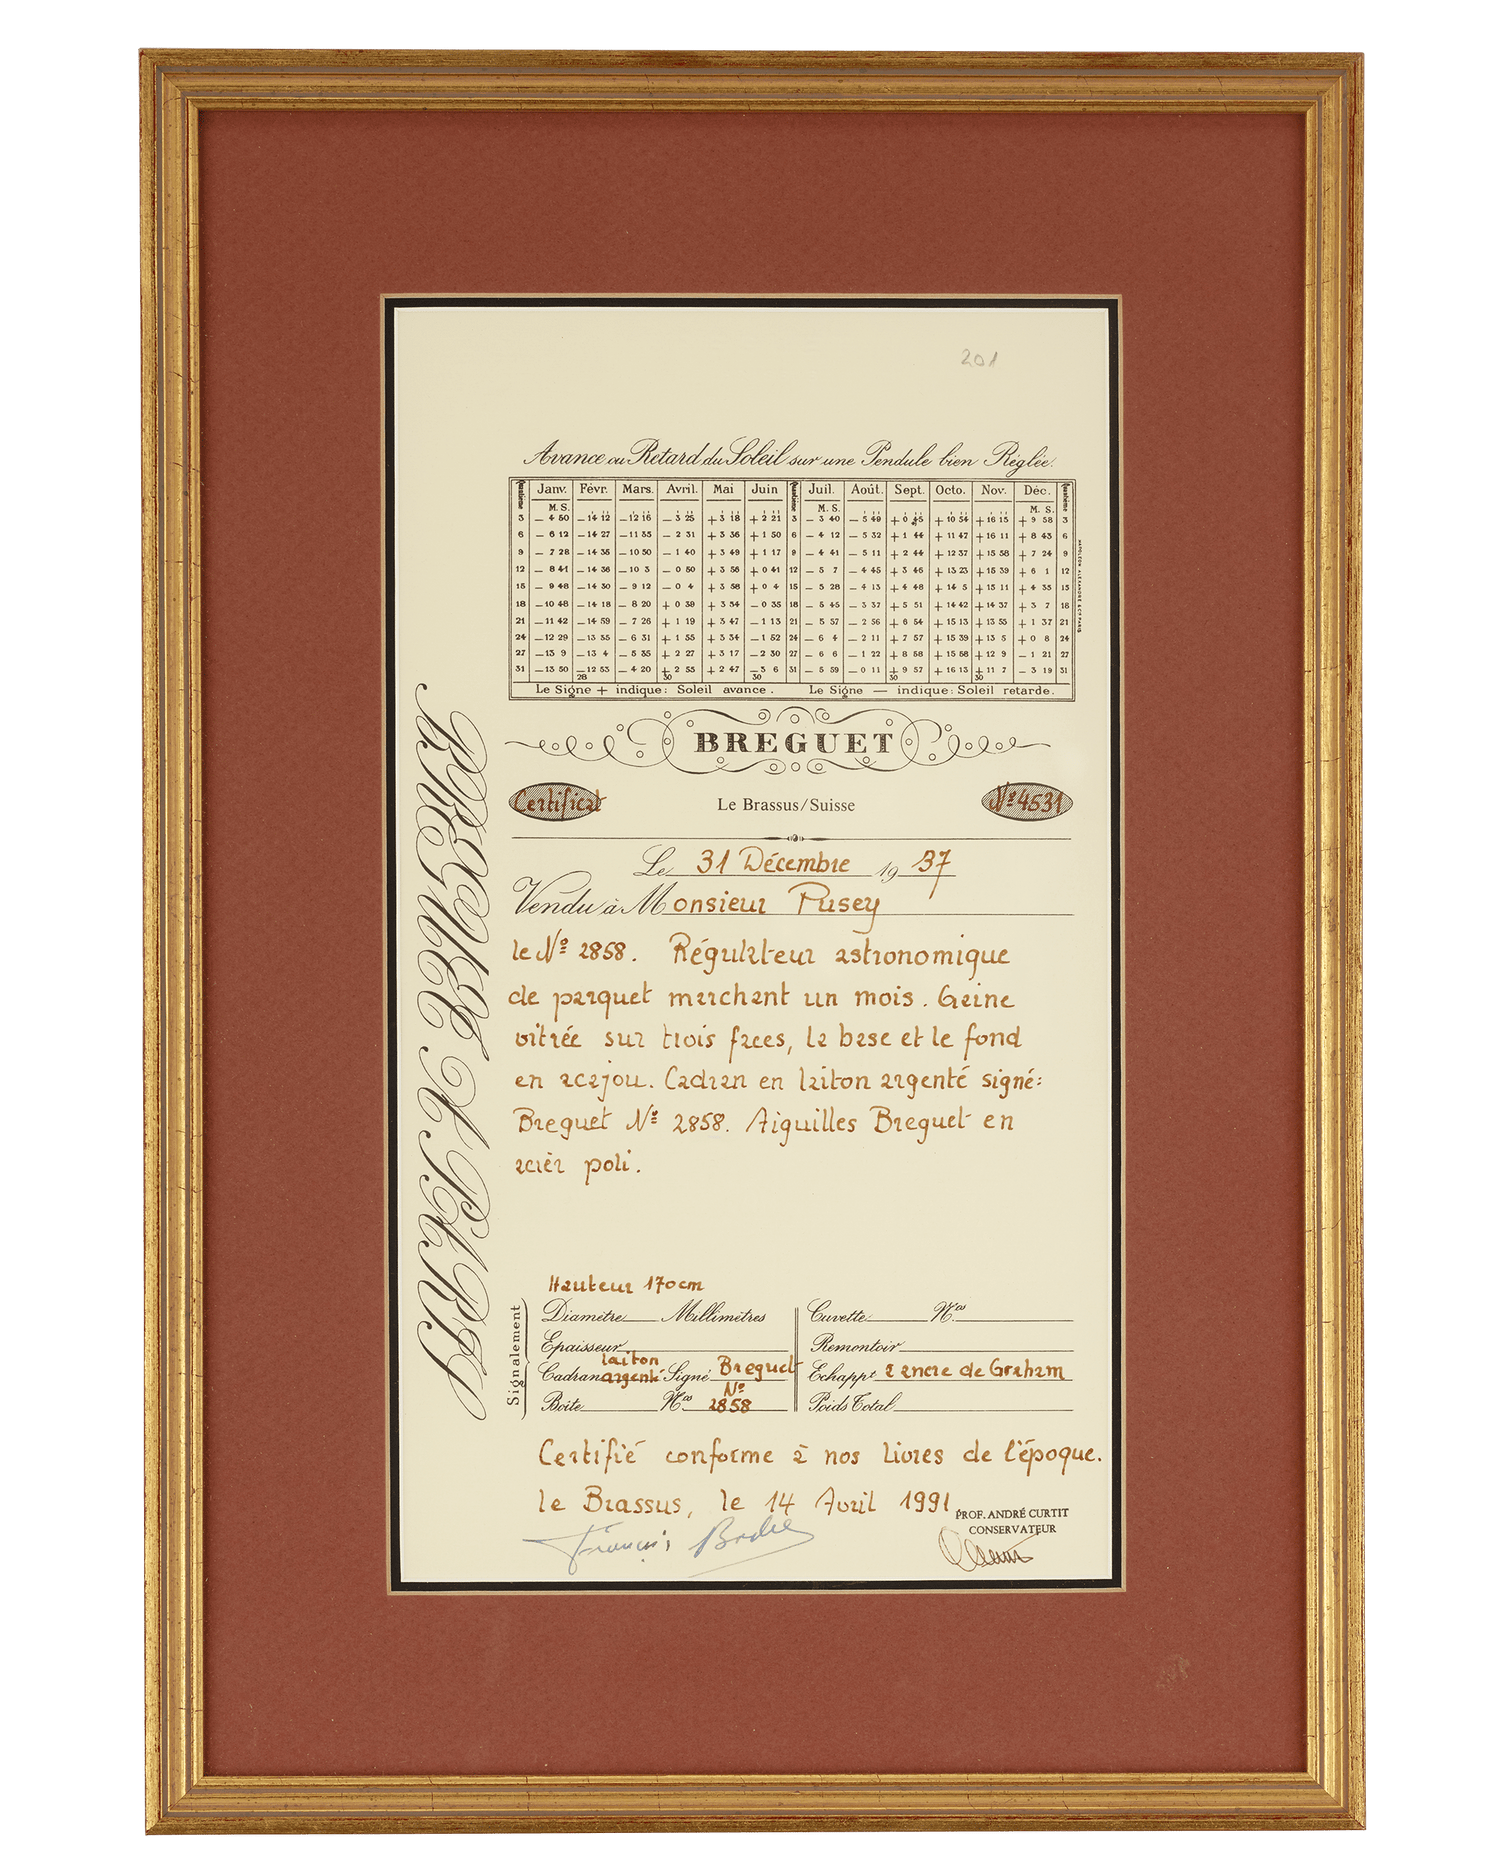 201
Avance ou Retard du Soleil sur une Pendule bien Réglée.
Quantième Janv. Févr. Mars. Avril. Mai Juin Quantième Juil. Août. Sept. Octo. Nov. Déc. Quantième
M. S. M. S. M. S.
3 — 4 50 — 14 12 — 12 16 — 3 25 + 3 18 + 2 21 3 — 3 40 — 5 49 + 0 45 + 10 54 + 16 15 + 9 58 3
6 — 6 12 — 14 27 — 11 35 — 2 31 + 3 36 + 1 50 6 — 4 12 — 5 32 + 1 44 + 11 47 + 16 11 + 8 43 6
9 — 7 28 — 14 35 — 10 50 — 1 40 + 3 49 + 1 17 9 — 4 41 — 5 11 + 2 44 + 12 37 + 15 58 + 7 24 9
12 — 8 41 — 14 36 — 10 3 — 0 50 + 3 56 + 0 41 12 — 5 7 — 4 45 + 3 46 + 13 23 + 15 39 + 6 1 12
15 — 9 46 — 14 30 — 9 12 — 0 4 + 3 58 + 0 4 15 — 5 28 — 4 13 + 4 48 + 14 5 + 15 11 + 4 35 15
18 — 10 46 — 14 18 — 8 20 + 0 39 + 3 54 — 0 35 18 — 5 45 — 3 37 + 5 51 + 14 42 + 14 37 + 3 7 18
21 — 11 42 — 14 59 — 7 26 + 1 19 + 3 47 — 1 13 21 — 5 57 — 2 56 + 6 54 + 15 13 + 13 55 + 1 37 21
24 — 12 29 — 13 35 — 6 31 + 1 55 + 3 34 — 1 52 24 — 6 4 — 2 11 + 7 57 + 15 39 + 13 5 + 0 8 24
27 — 13 9 — 13 4 — 5 35 + 2 27 + 3 17 — 2 30 27 — 6 6 — 1 22 + 8 58 + 15 58 + 12 9 — 1 21 27
31 — 13 50 — 12 53 — 4 20 + 2 55 + 2 47 — 3 6 31 — 5 59 — 0 11 + 9 57 + 16 13 + 11 7 — 3 19 31
28 30 30 30 30
Le Signe + indique: Soleil avance. Le Signe — indique: Soleil retarde.
NAPOLEON ALEXANDRE & Cº PARIS
BREGUET
BREGUET A PARIS
Certificat Le Brassus/Suisse Nº 4531
Le 31 Décembre 1937
Vendu à Monsieur Pusey
le Nº 2858. Régulateur astronomique
de parquet marchant un mois. Gaine
vitrée sur trois faces, la base et le fond
en acajou. Cadran en laiton argenté signé:
Breguet Nº 2858. Aiguilles Breguet en
acier poli.
Hauteur 170cm
Signalement
Diamètre Millimètres Cuvette Nos
Epaisseur Remontoir
Cadran laiton argenté Signé Breguet Echappt à ancre de Graham
Boîte Nos Nº 2858 Poids Total
Certifié conforme à nos livres de l'époque.
le Brassus, le 14 Avril 1991
PROF. ANDRÉ CURTIT
CONSERVATEUR
François Bodet